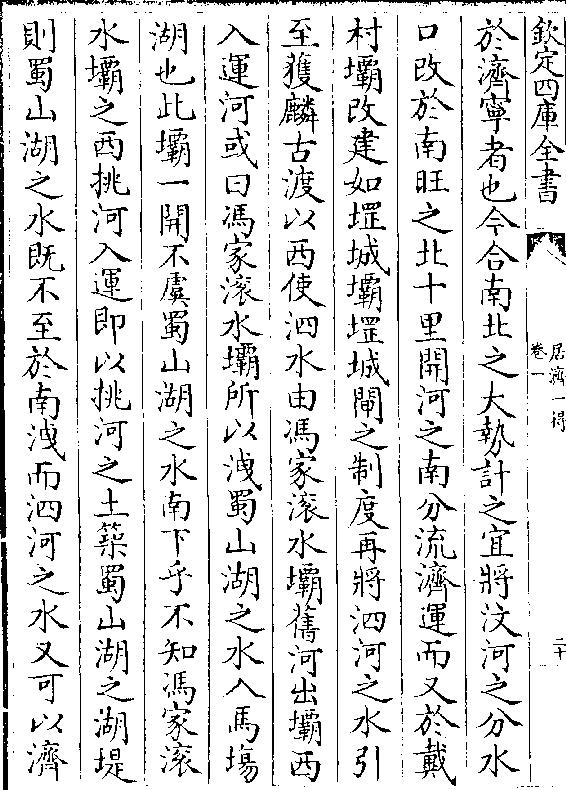 欽定四庫全書
居濟一得
卷一
二十
於濟寧者也今合南北之大勢計之宜將汶河之分水
口改於南旺之北十里開河之南分流濟運而又於戴
村壩改建如堽城壩堽城閘之制度再將泗河之水引
至獲麟古渡以西使泗水由馮家滚水壩舊河出壩西
入運河或曰馮家滚水壩所以洩蜀山湖之水入馬塲
湖也此壩一開不虞蜀山湖之水南下乎不知馮家滚
水壩之西挑河入運即以挑河之土築蜀山湖之湖堤
則蜀山湖之水既不至於南洩而泗河之水又可以濟